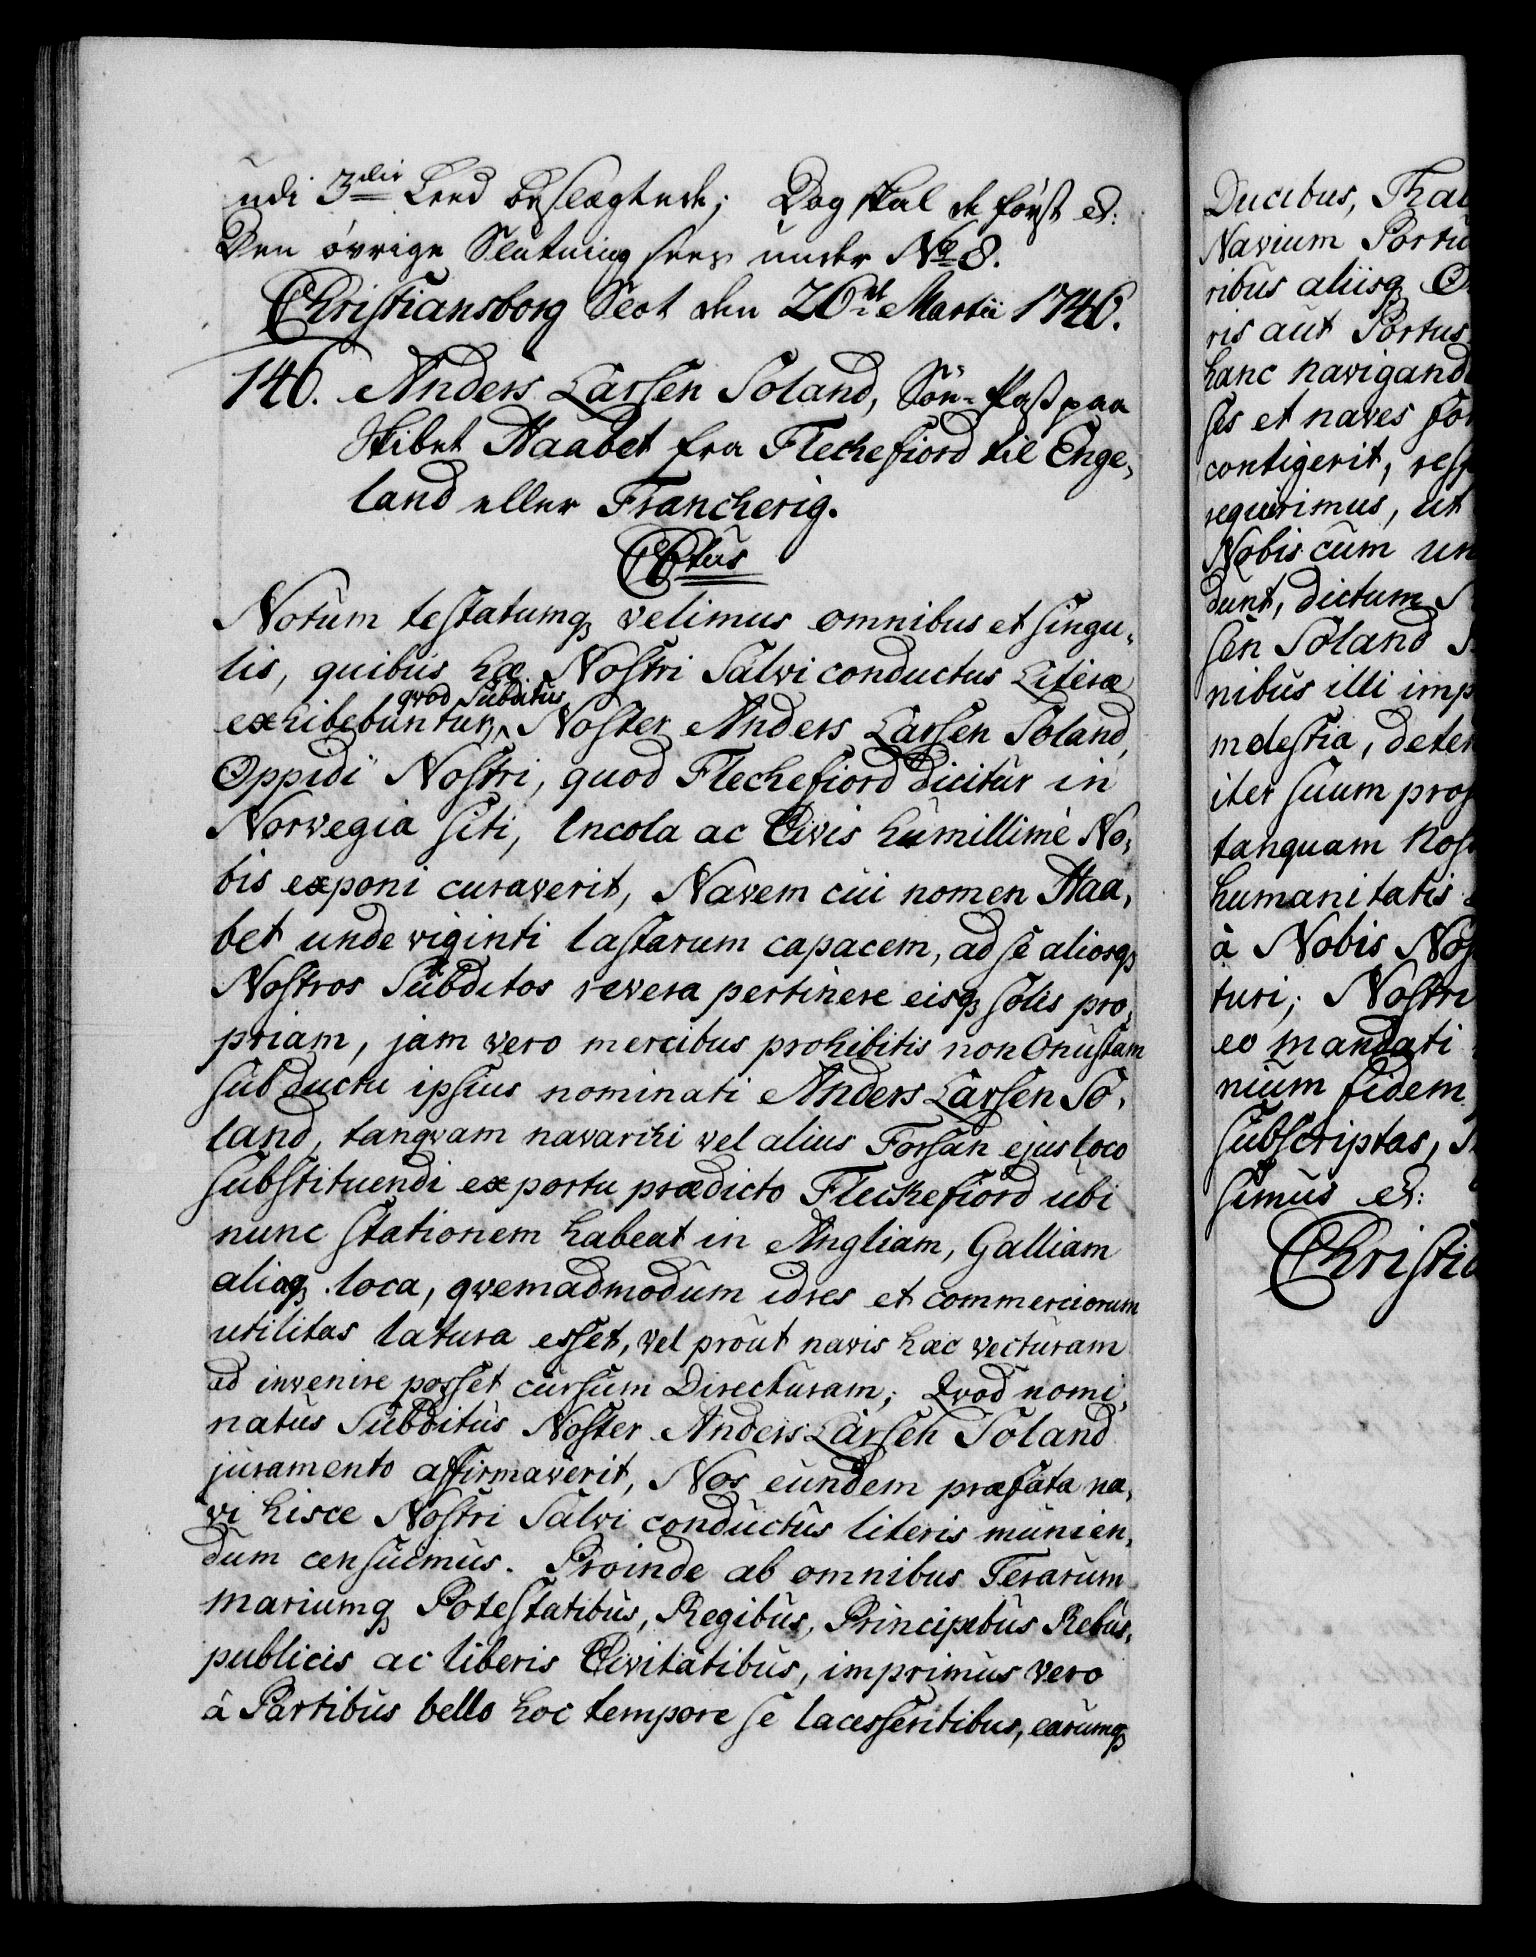 udi 3die Leed beslægtede; Dog skal de först etc:
Den övrige Slutning sees under No 8.
Christiansborg Slot den 26de Martii 1746.
146. Anders Larsen Soland, Söe-Pass paa
Skibet Haabet fra Fleckefiord til Enge-
land eller Franckerig.
C6tus
Notum testatumq velimus omnibus et singu-
lis, quibus hæ Nostri Salvi conductus Literæ
qvod Subditus
exhibebuntur, Noster Anders Larsen Soland,
Oppidi Nostri, quod Fleckefiord dicitur in
Norvegia siti, Incola ac Civis humillimè No-
bis exponi curaverit, Navem cui nomen Haa-
bet unde viginti lastarum capacem, ad se aliosq
Nostros Subditos revera pertinere eisq solis pro-
priam, jam vero mercibus prohibitis non onustam
sub ductu ipsius nominati Anders Larsen So-
land, tanqvam navarchi vel alius Forsan ejus loco
substituendi ex portu prædicto Fleckefiord ubi
nunc stationem habeat in Angliam, Galliam
aliaq loca, qvemadmodum id res et commerciorum
utilitas latura esset, vel prout navis hac vecturam
ad invenire posset cursum Directuram; Qvod nomi-
natus Subditus Noster Anders Larsen Soland
juramento affirmaverit, Nos eundem præfata na-
vi hisce Nostri Salvi conductus literis munien-
dum censuimus. Proinde ab omnibus Terarum
mariumq Potestatibus, Regibus, Principibus Rebus-
publicis ac liberis Civitatibus, imprimus vero
à Partibus bello hoc tempore se lacessentibus, earumq
Ducibus,
Navium Portu
ribus aliisq
ris aut Portus
hanc navigand
ses et naves
contigerit,
requirimus, ut
Nobis cum
dunt, dictum
sen Soland
nibus illi imp
molestia,
iter suum
tanquam
humanitatis
à Nobis
turi; Nostri
eo mandati
nium fidem
subscriptas,
simus etc: